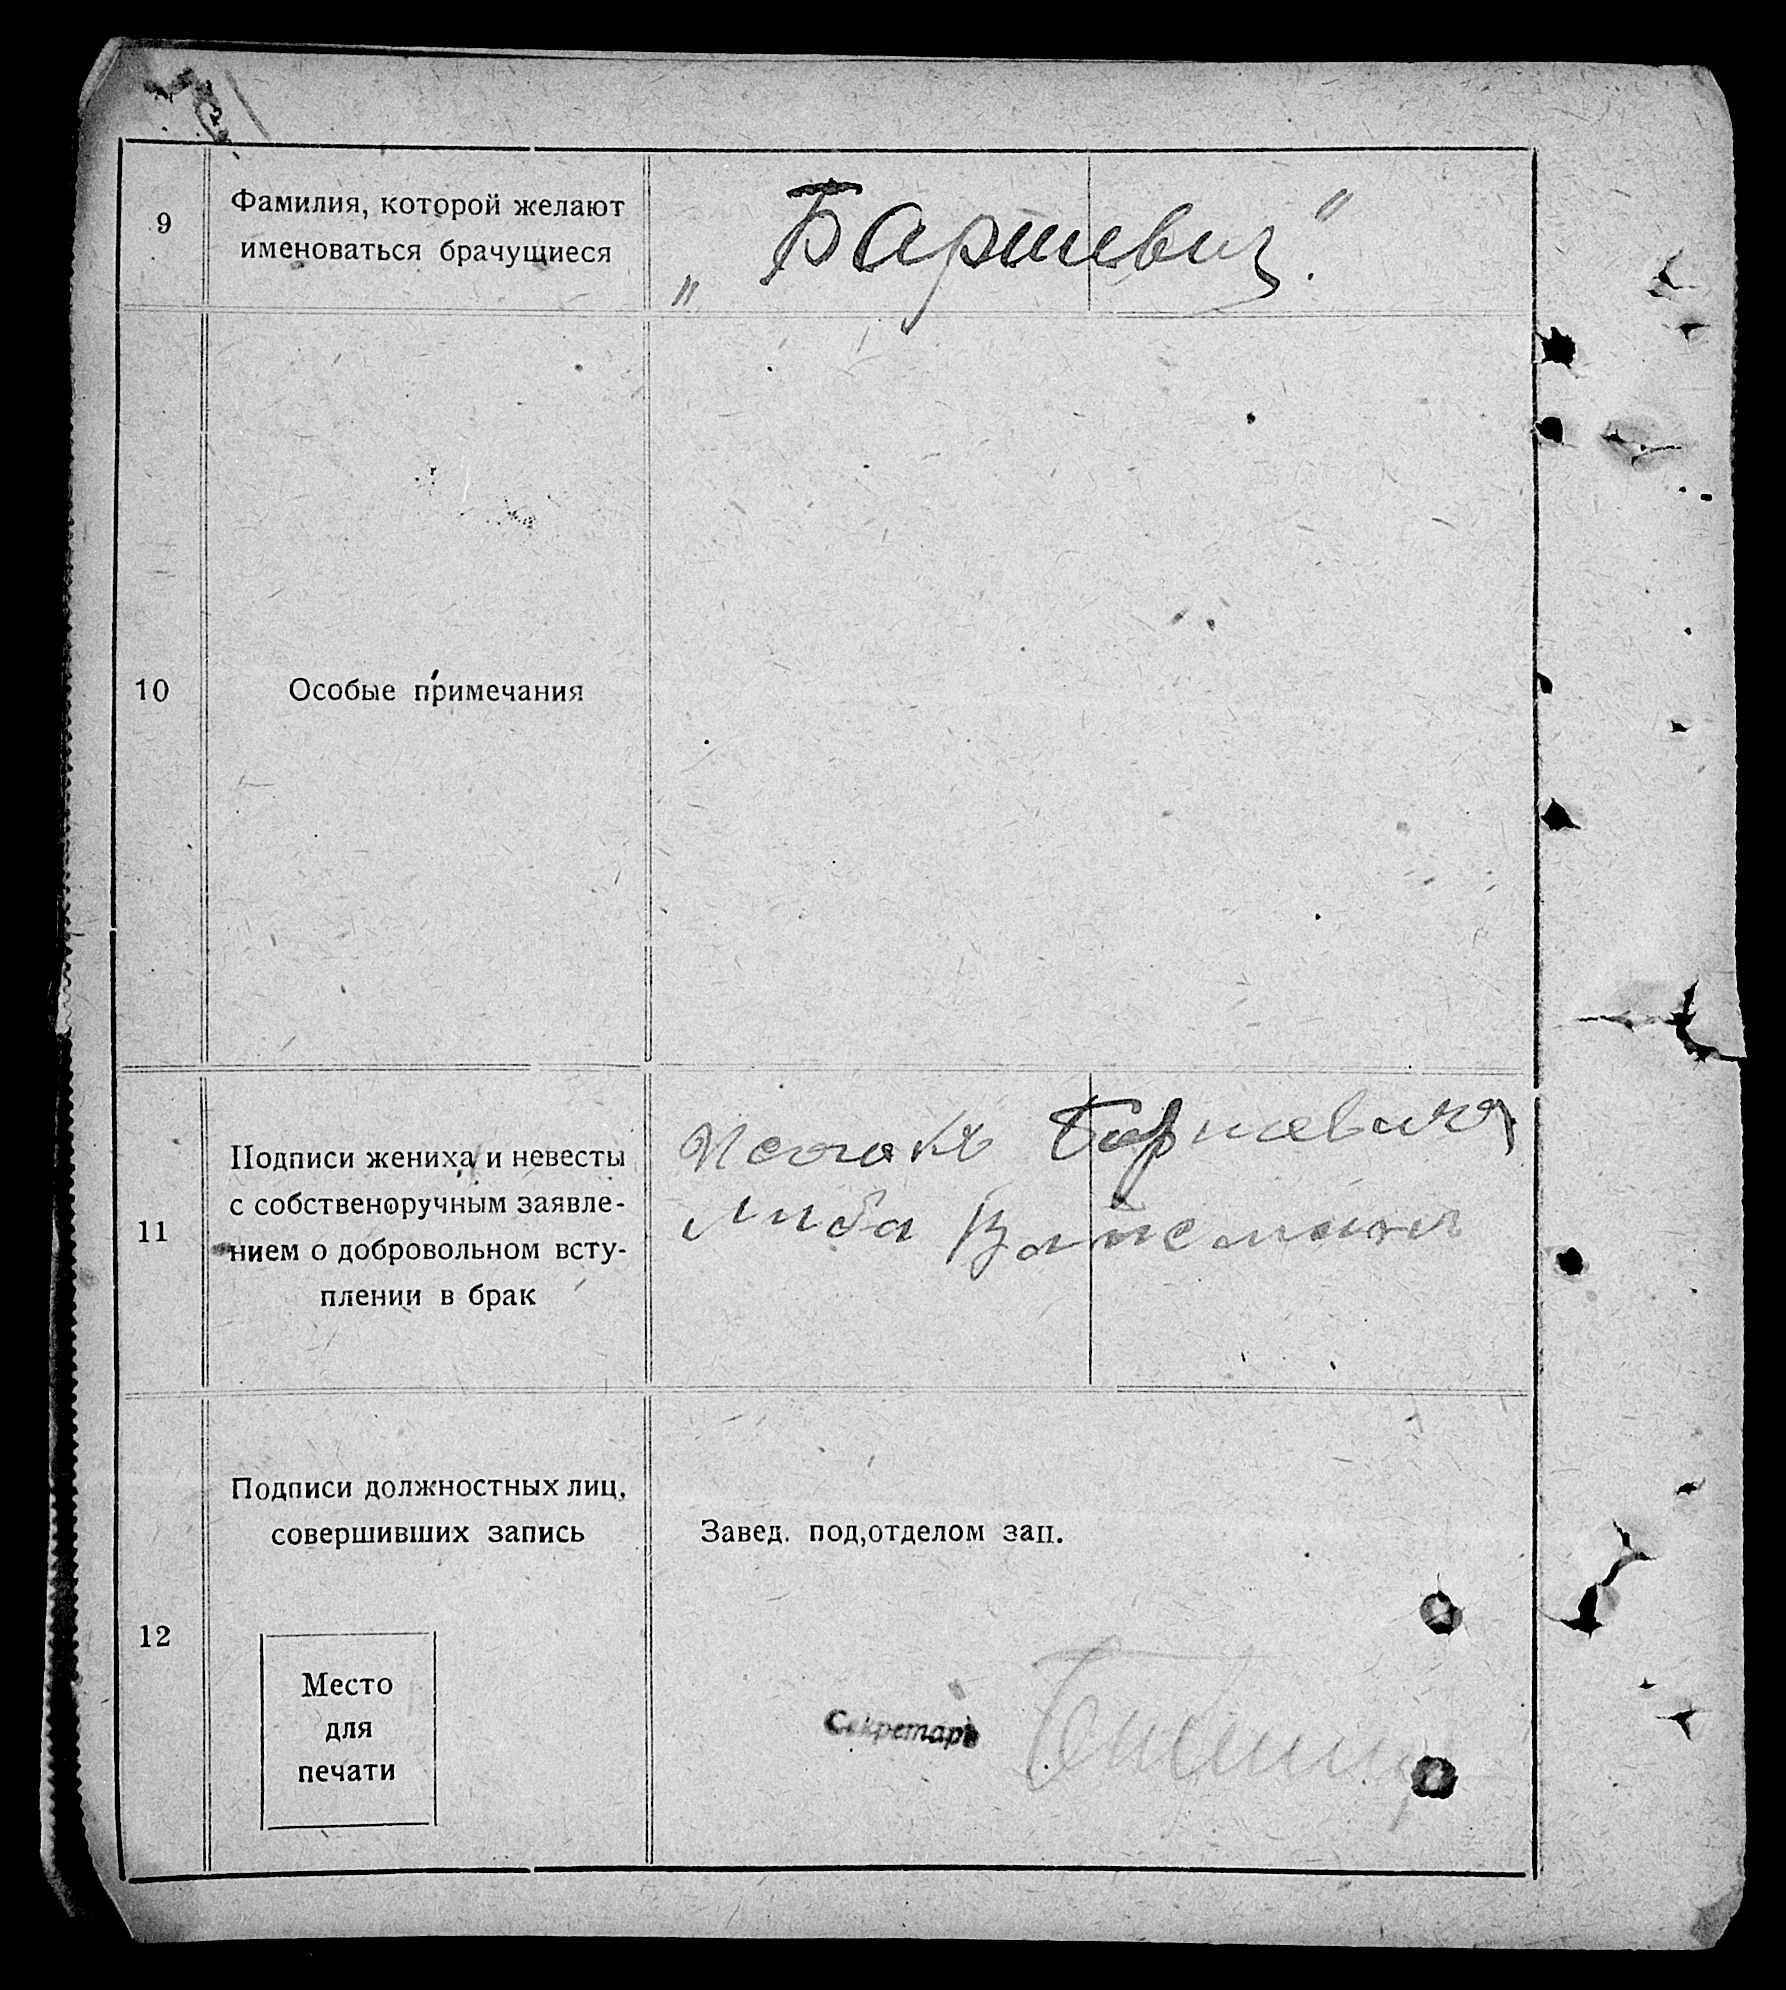 9
Фамилия, которой желают
именоваться брачущиеся
„Баршевич."
10
Особые примечания
11
Подписи жениха и невесты
с собственоручным заявле-
нием о добровольном всту-
плении в брак
Баршевич
Либа Вайсман
12
Подписи должностных лиц,
совершивших запись
Место
для
печати
Завед. под,отделом зап.
Секретарь